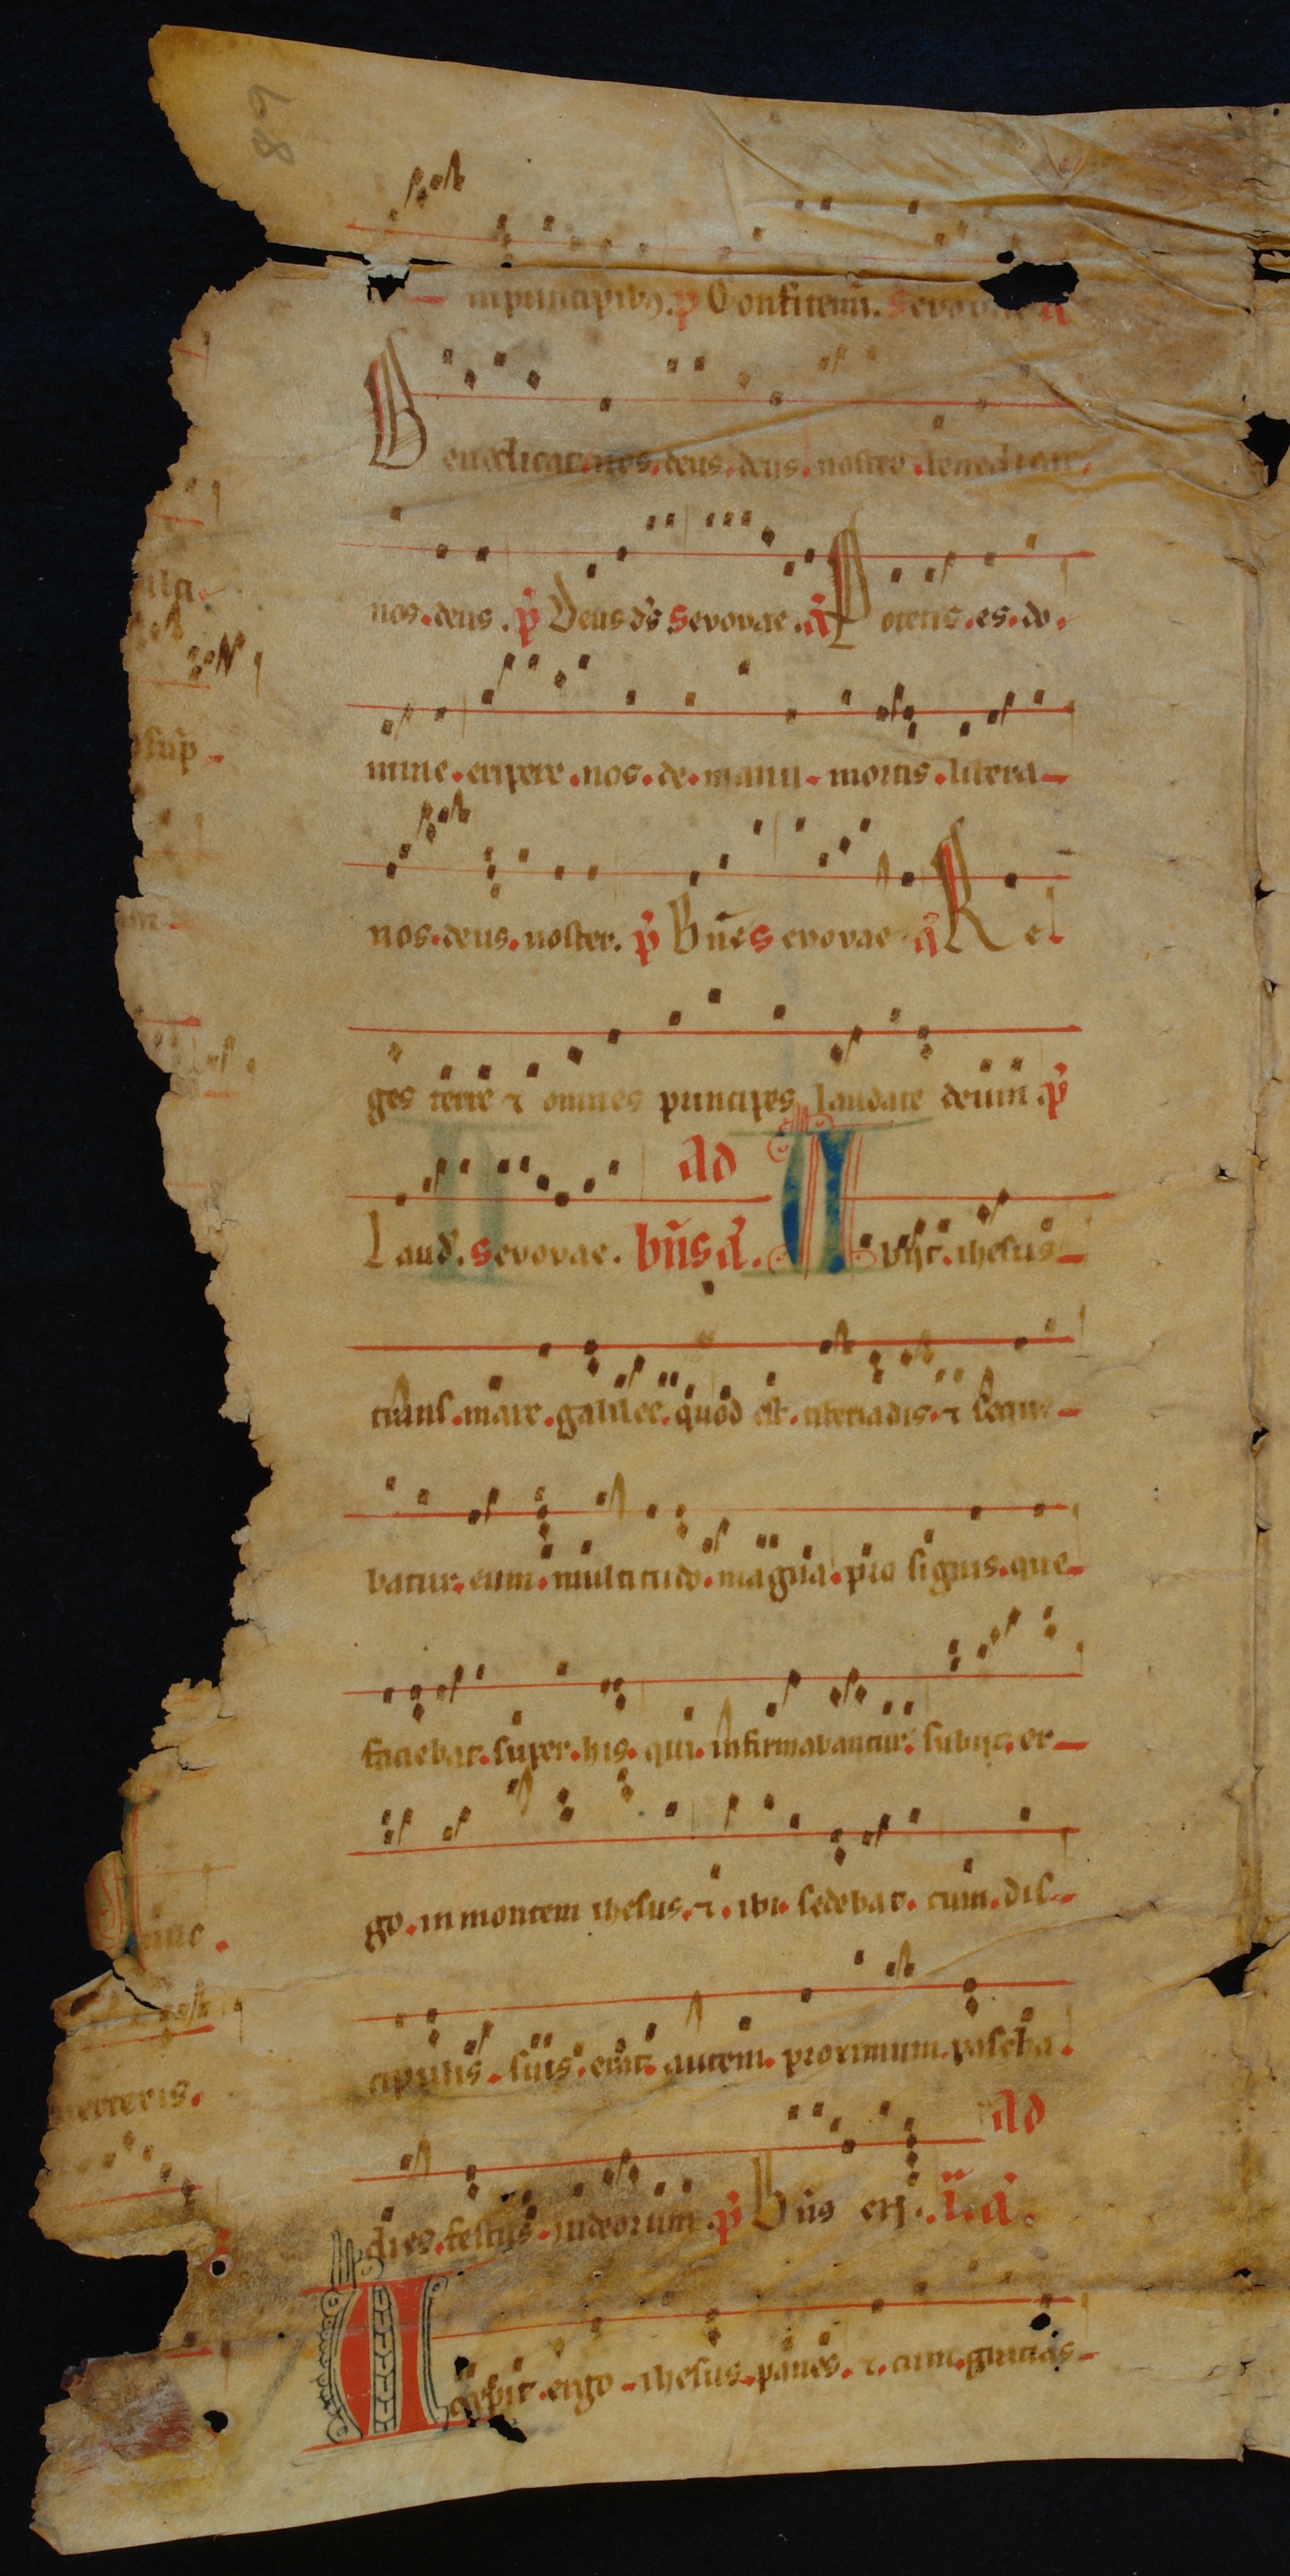 89
in principib9. p Confitemi. Sevovae a
Benedicat. nos. deus. deus. noster. benedicat.
nos. deus. p Deus ds Sevovae. a Potens. es. do.
mine. eripere. nos. de. manu. mortis. libera-
nos. deus. noster. p Bnes evovae a Re.
ges terre & omnes principes laudate deum p
Laud. Sevovae. Ad bns a. Abijt. ihesus-
trans. mare. galilee. quod est. tiberiadis. & seque-
batur. eum. multitudo. magna. pro signis. que-
faciebat. super. his. qui. infirmabantur. subijt. er-
go. in montem ihesus. &. ibi. sedebat. cum. dis-
cipulis. suis. erat. autem. proximum. pascha.
dies. festus. iudeorum p Bns Ad
Accepit. ergo - ihesus. panes. &. cum. gracias-